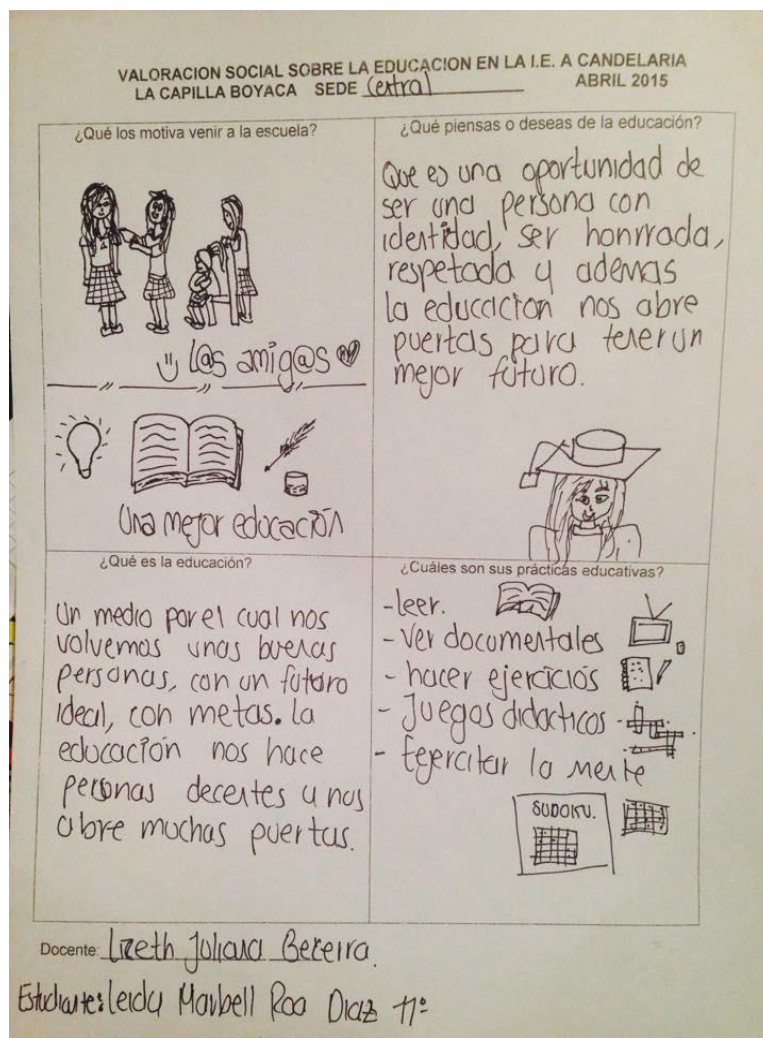 VALORACION SOCIAL SOBRE LA EDUCACION EN LA I.E. A CANDELARIA
LA CAPILLA BOYACA SEDE Central ABRIL 2015
¿Qué los motiva venir a la escuela?
L@s amig@s
Una mejor educación
¿Qué piensas o deseas de la educación?
Que es una oportunidad de
ser una persona con
identidad, ser honrrada,
respetada y ademas
la educacion nos abre
puertas para tener un
mejor futuro.
¿Qué es la educación?
Un medio por el cual nos
volvemos unas buenas
personas, con un futuro
ideal, con metas. la
educación nos hace
personas decentes y nos
abre muchas puertas.
¿Cuáles son sus prácticas educativas?
-leer.
- Ver documentales
- hacer ejercicios
- Juegos didacticos
- Ejercitar la mente
SUDOKU.
Docente: Lizeth Juliana Becerra.
Estudiante: Leidy Marbell Roa Diaz 11º